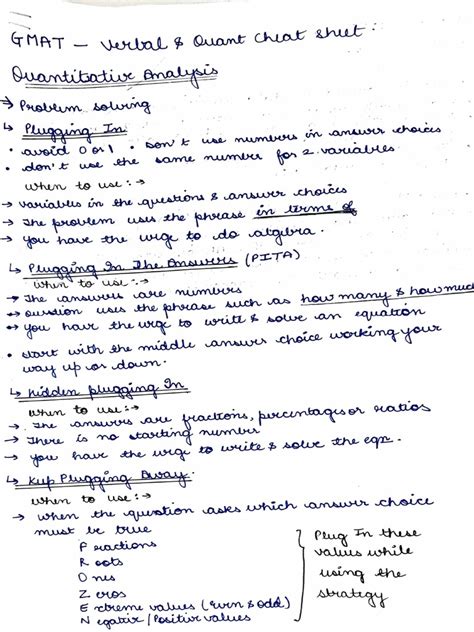 GMAT - Verbal & Quant Cheat sheet
Quantitative Analysis
→ Problem solving
↳ Plugging In
• avoid 0 or 1 • Don't use numbers in answer choices
• don't use the same number for 2 variables
when to use :→
→ variables in the questions & answer choices
→ The problem uses the phrase in terms of
→ you have the urge to do algebra.
↳ Plugging In The Answers (PITA)
when to use :→
→ The answers are numbers
→ question uses the phrase such as how many & how much
→ you have the urge to write & solve an equation
• start with the middle answer choice working your
way up or down.
↳ hidden plugging In
when to use :→
→ The answers are fractions, percentages or ratios
→ There is no starting number
→ you have the urge to write & solve the eqn.
↳ Keep Plugging Away.
when to use :→
→ when the question asks which answer choice
must be true
Fractions
Roots
Ones
Zeros
Extreme values (Even & odd)
Negative/Positive values
Plug In these
values while
using the
strategy